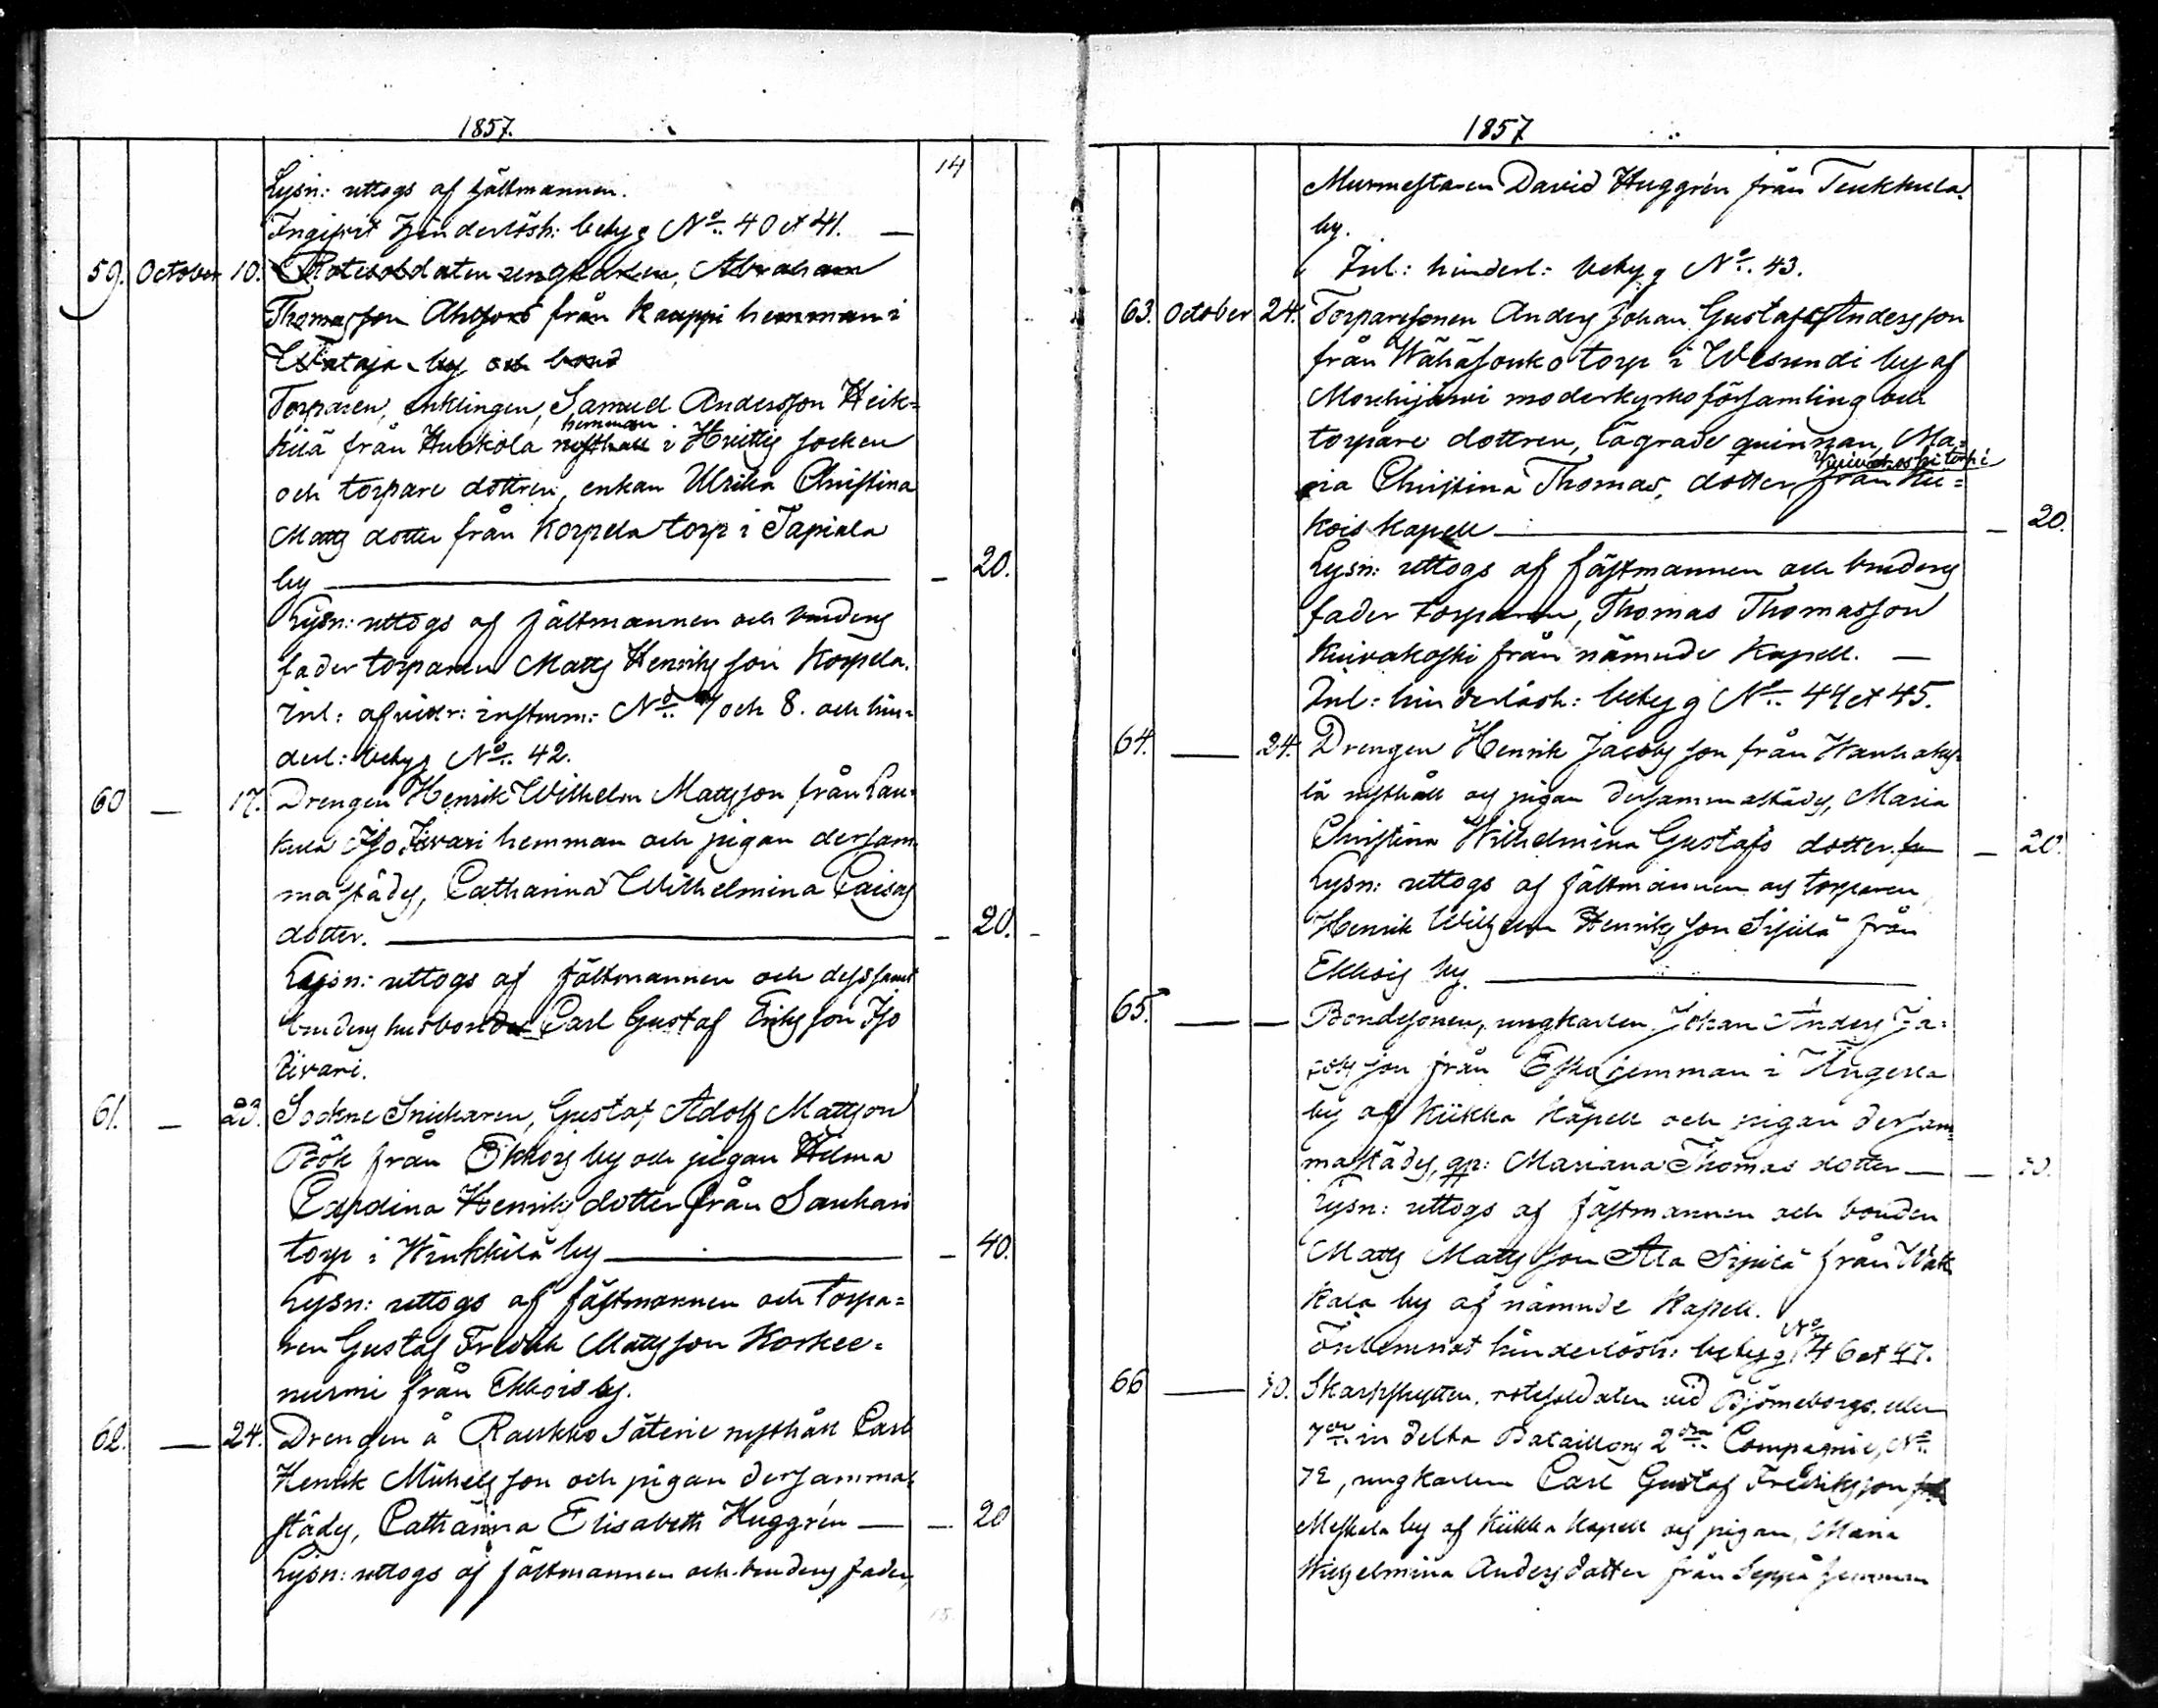 1857.
14
Lysn: uttogs af fästmannen.
Ingifvit hinderlösh: betyg No. 40 et 41. —
59. October 10. Rotesoldaten ungkarlen, Abraham
Thomasson Ahlfors från Kauppi hemman i
Wataja by och bond
Torparen, enklingen, Samuel Andersson Heik=
hemman
kilä från Hunkola rusthåll i Huittis socken
och torpare dottren, enkan Ulrika Christina
Matts dotter från Korpela torp i Tapiala
by — 20.
Lysn: uttogs af fästmannen och brudens
fader torparen Matts Henriksson Korpela.
Inl: afvittr: instrum: No. 7 och 8. och hin=
derl: betyg No. 42.
60 — 17. Drengen Henrik Wilhelm Mattsson från Lau=
kula Iso Iivari hemman och pigan dersam=
mastäds, Catharina Wilhelmina Caisas
dotter. — 20. -
Lysn: uttogs af fästmannen och dess samt
brudens husbonde Carl Gustaf Eriksson Iso
Iivari.
61. — 23. Sockne Snickaren, Gustaf Adolf Mattsson
Bök från Ekkois by och pigan Wilma
Carolina Henriks dotter från Saukari
torp i Winkkilä by — 40.
Lysn: uttogs af fästmannen och torpa=
ren Gustaf Fredrik Mattsson Koskee=
nurmi från Ekkois by.
62. — 24. Drengen å Raukko Säterie rusthåll Carl
Henrik Michelsson och pigan dersamma=
städs, Catharina Elisabeth Huggrén — 20
Lysn: uttogs af fästmannen och brudens fader,
15.
1857
Murmestaren David Huggrén från Teukkula
by.
Inl: hinderl: betyg No. 43.
63. October 24. Torparesonen Anders Johan Gustaf Andersson
från Wähäjouko torp i Wesundi by af
Mouhijärvi moderkyrkoförsamling och
torpare dottren, lägrade quinnan, Ma=
Kuivakoski torp i
ria Christina Thomas, dotter, från Kii=
kois kapell — 20.
Lysn: uttogs af fästmannen och brudens
fader torparen, Thomas Thomasson
Kuivakoski från nämnde Kapell. —
Inl: hinderlösh: betyg No. 44 et 45.
64. — 24. Drengen Henrik Jacobsson från Wanhaky=
lä rusthåll och pigan dersammastäds, Maria
Christina Wilhelmina Gustafs dotter. — 20.
Lysn: uttogs af fästmannen och torparen
Henrik Wilhelm Henriksson Sipilä från
Ekkois by. —
65. — — Bondesonen, ungkarlen Johan Anders Ja=
cobsson från Esko hemman i Kngesla
by af Kiikka Kapell och pigan dersam=
mastäds, qp: Mariana Thomas dotter — 20.
Lysn: uttogs af fästmannen och bonden
Matts Mattsson Ala Sipilä från Wak=
kala by af nämnde Kapell.
No
Inlemnat hinderlösh: betyg 46 et 47.
66 — 30. Skarpskytten, rotesoldaten vid Björneborgs eller
7de indelta Bataillons 2dra Compagnie, No.
72, ungkarlen Carl Gustaf Fredriksson från
Meskala by af Kiikka Kapell och pigan, Maria
Wilhelmina Andersdotter från Seppä hemman